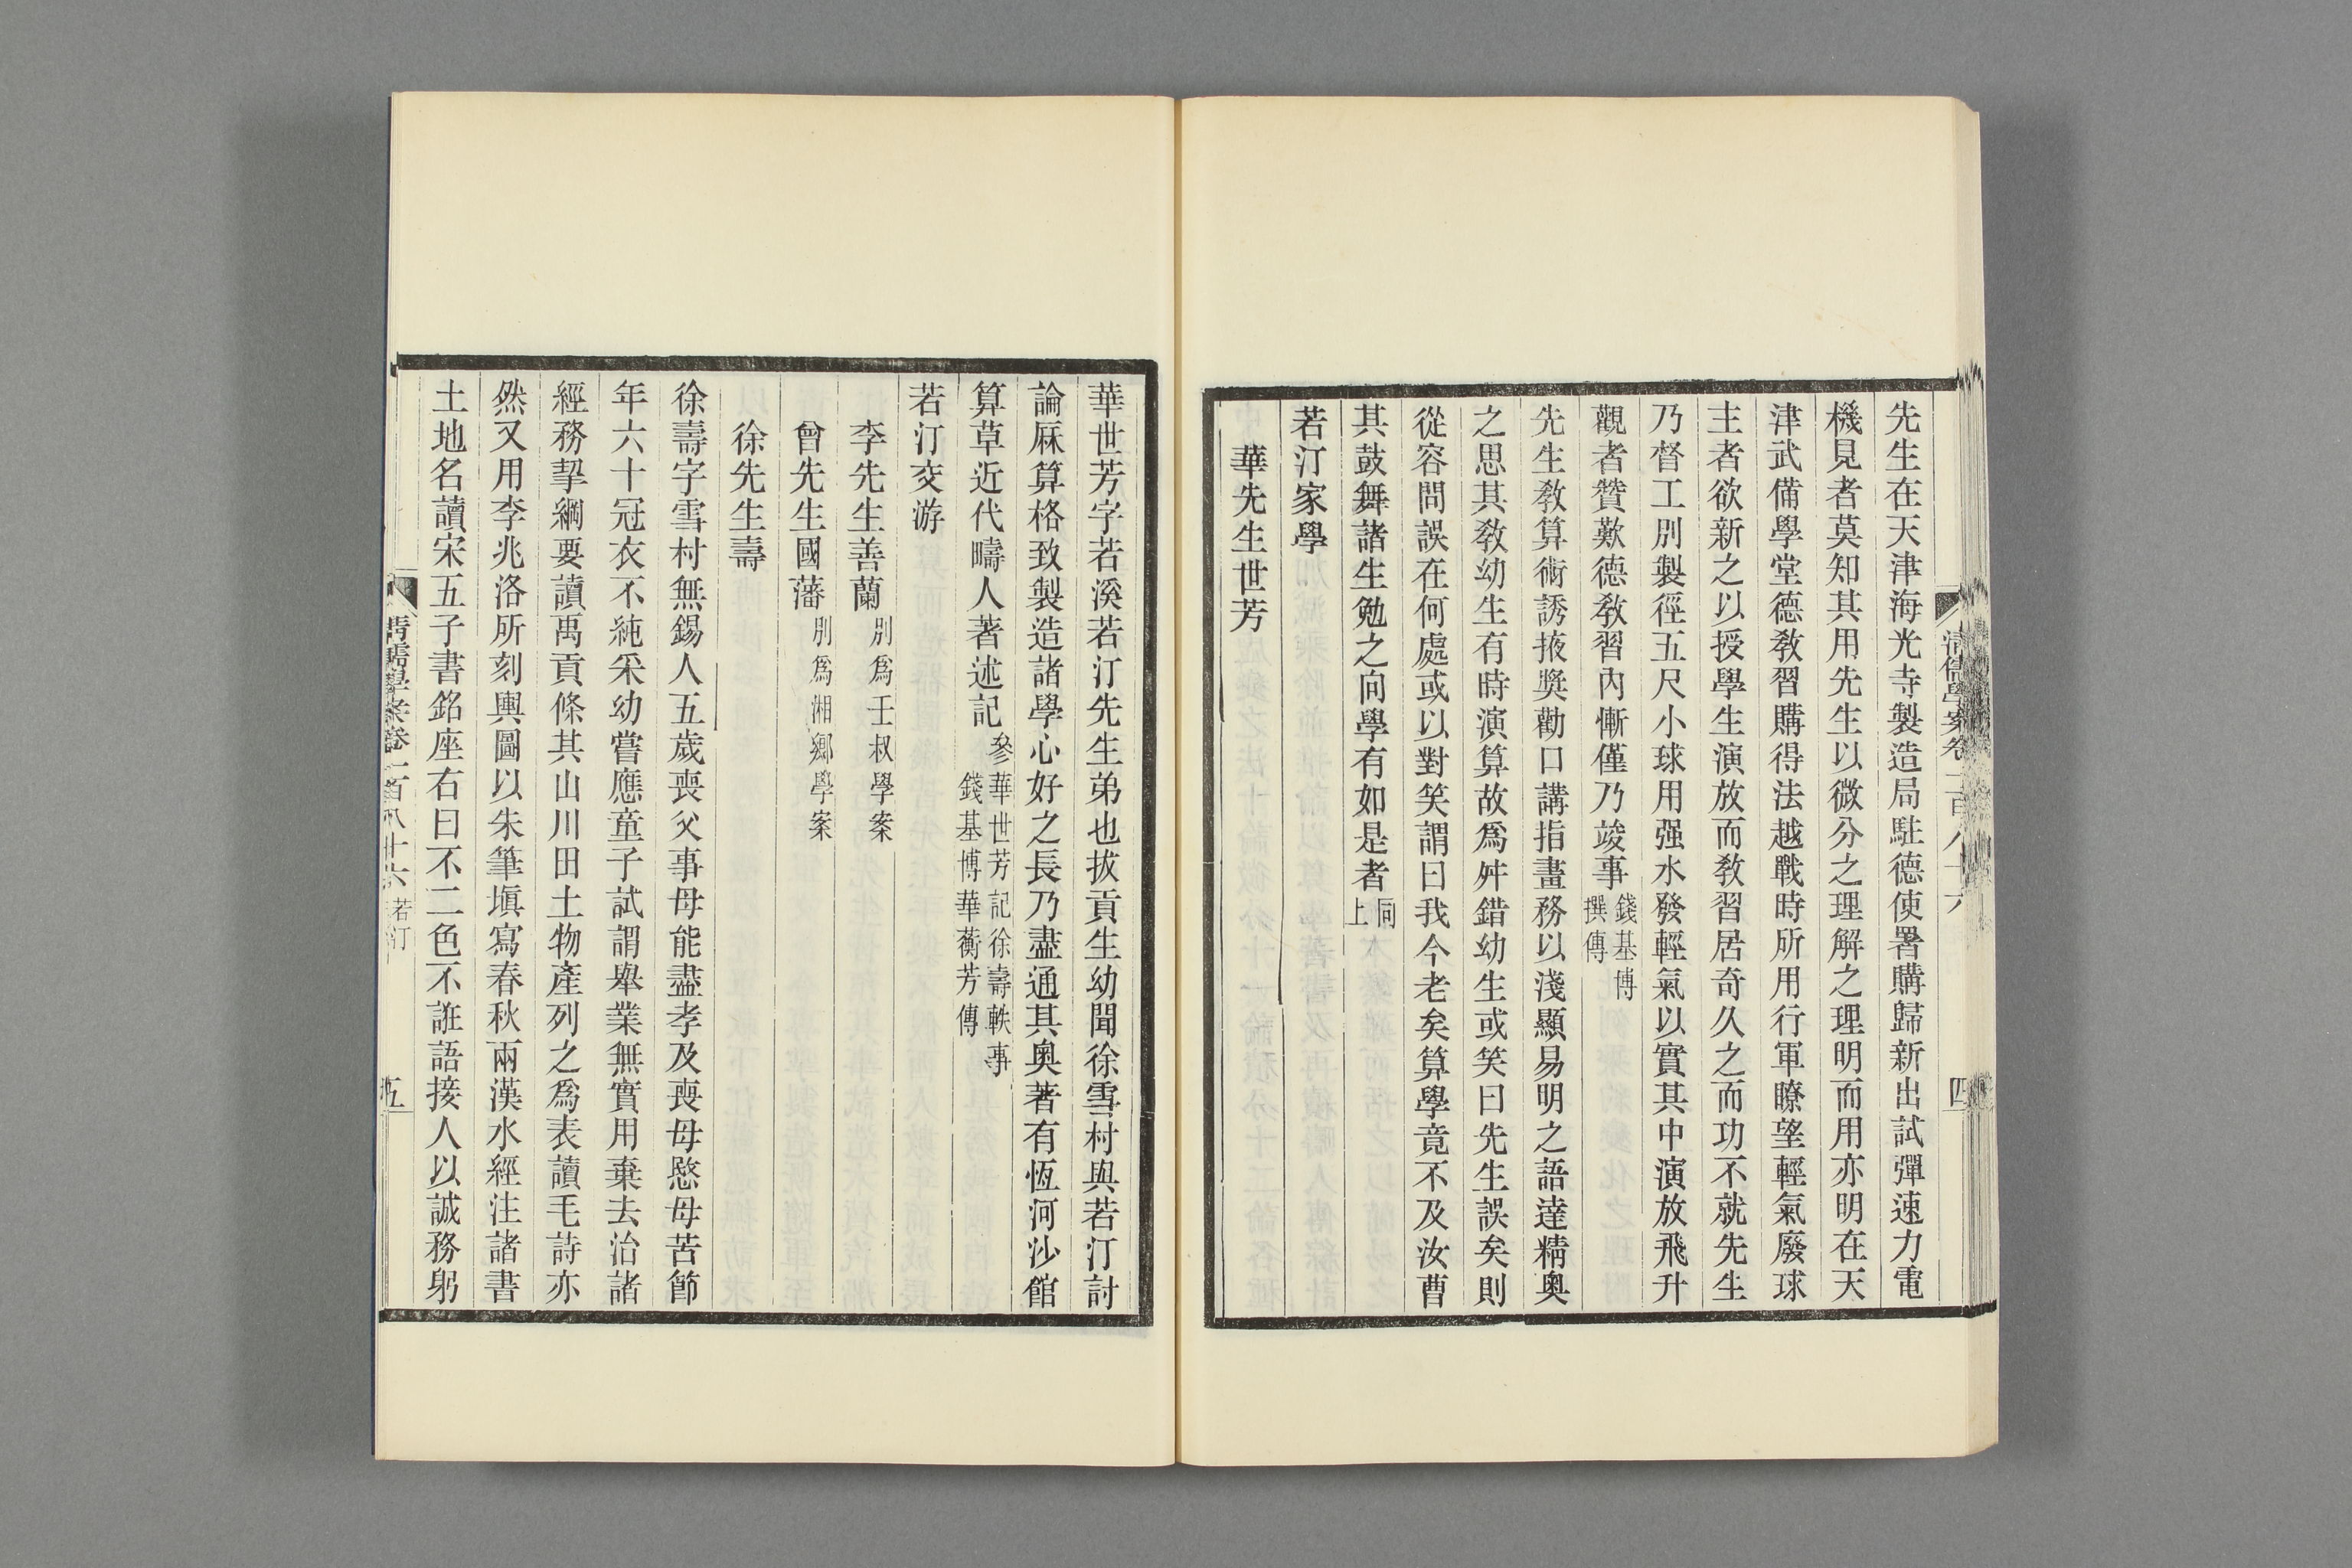 先生在天津海光寺製造局駐德使署購歸新出試彈速力電
機見者莫知其用先生以微分之理解之理明而用亦明在天
津武備學堂德敎習購得法越戰時所用行軍瞭望輕氣廢球
主者欲新之以授學生演放而敎習居奇久之而功不就先生
乃督工別製徑五尺小球用强水發輕氣以實其中演放飛升
觀者贊歎德敎習內慚僅乃竣事錢基博撰傳
先生敎算術誘掖奬勸口講指畫務以淺顯易明之語達精奧
之思其敎幼生有時演算故爲舛錯幼生或笑曰先生誤矣則
從容問誤在何處或以對笑謂曰我今老矣算學竟不及汝曹
其鼓舞諸生勉之向學有如是者同上
若汀家學
華先生世芳
華世芳字若溪若汀先生弟也拔貢生幼聞徐雪村與若汀討
論厤算格致製造諸學心好之長乃盡通其奧著有恆河沙館
算草近代疇人著述記參華世芳記徐壽軼事錢基博華蘅芳傳
若汀交游
李先生善蘭別爲壬叔學案
曾先生國藩別爲湘鄕學案
徐先生壽
徐壽字雪村無錫人五歲喪父事母能盡孝及喪母愍母苦節
年六十冠衣不純采幼嘗應童子試謂舉業無實用棄去治諸
經務挈綱要讀禹貢條其山川田土物產列之爲表讀毛詩亦
然又用李兆洛所刻輿圖以朱筆塡寫春秋兩漢水經注諸書
土地名讀宋五子書銘座右曰不二色不誑語接人以誠務躬
清儒學案卷一百八十六 若汀
五
清儒學案卷一百八十六
四